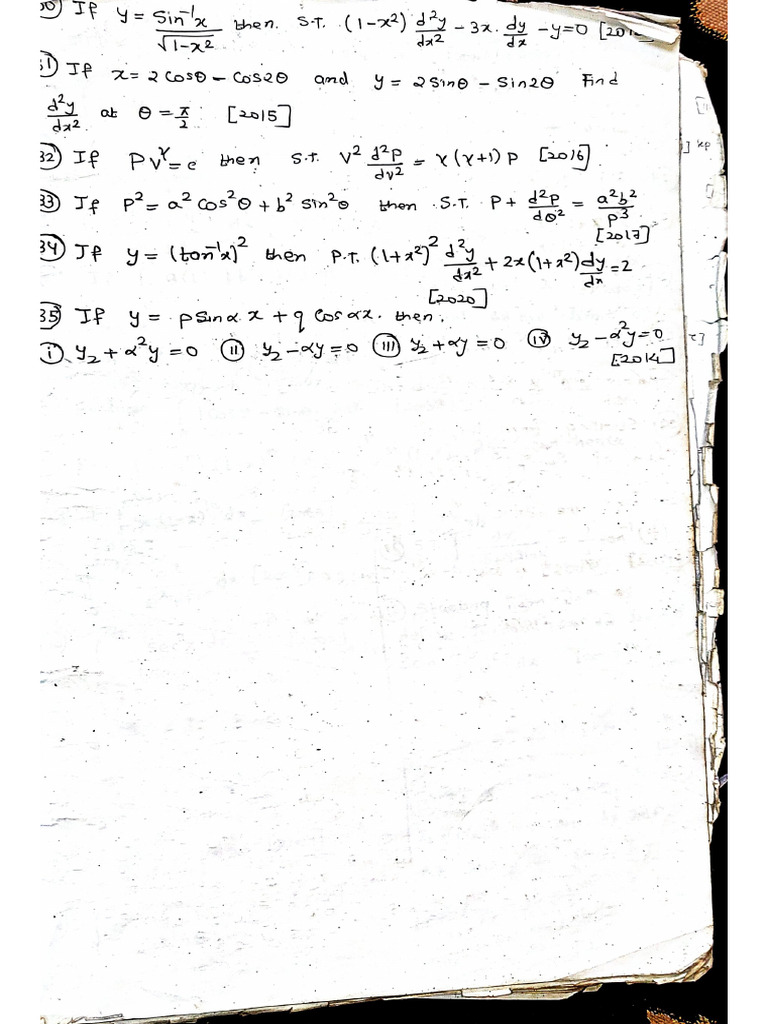 30) If y = Sin⁻¹x / √(1-x²) then. S.T. (1-x²) d²y/dx² - 3x. dy/dx - y=0
31) If x = 2cosθ - cos2θ and y = 2sinθ - sin2θ Find
d²y/dx² at θ = π/2 [2015]
32) If PVʳ = c then S.T. V² d²P/dV² = r(r+1)P [2016]
33) If P² = a²cos²θ + b²sin²θ then S.T. P + d²P/dθ² = a²b²/P³
[2017]
34) If y = (tan⁻¹x)² then P.T. (1+x²)² d²y/dx² + 2x(1+x²) dy/dx = 2
[2020]
35) If y = psinαx + qcosαx. then.
(i) y₂ + α²y = 0 (ii) y₂ - αy = 0 (iii) y₂ + αy = 0 (iv) y₂ - α²y = 0
[2014]